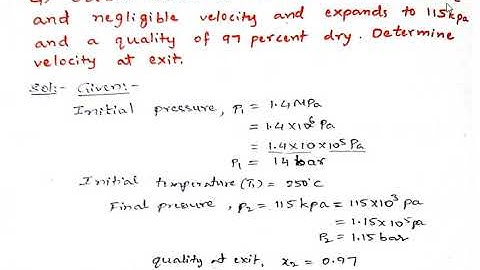 and negligible velocity and expands to 115kpa
and a quality of 97 percent dry. Determine
velocity at exit.
Sol:- Given:-
Initial pressure, P₁ = 1.4 MPa
= 1.4×10⁶ Pa
= 1.4×10×10⁵ Pa
P₁ = 14 bar
Initial temperature (T₁) = 250°C
Final pressure, P₂ = 115 kpa = 115×10³ pa
= 1.15×10⁵ pa
P₂ = 1.15 bar
quality at exit, x₂ = 0.97